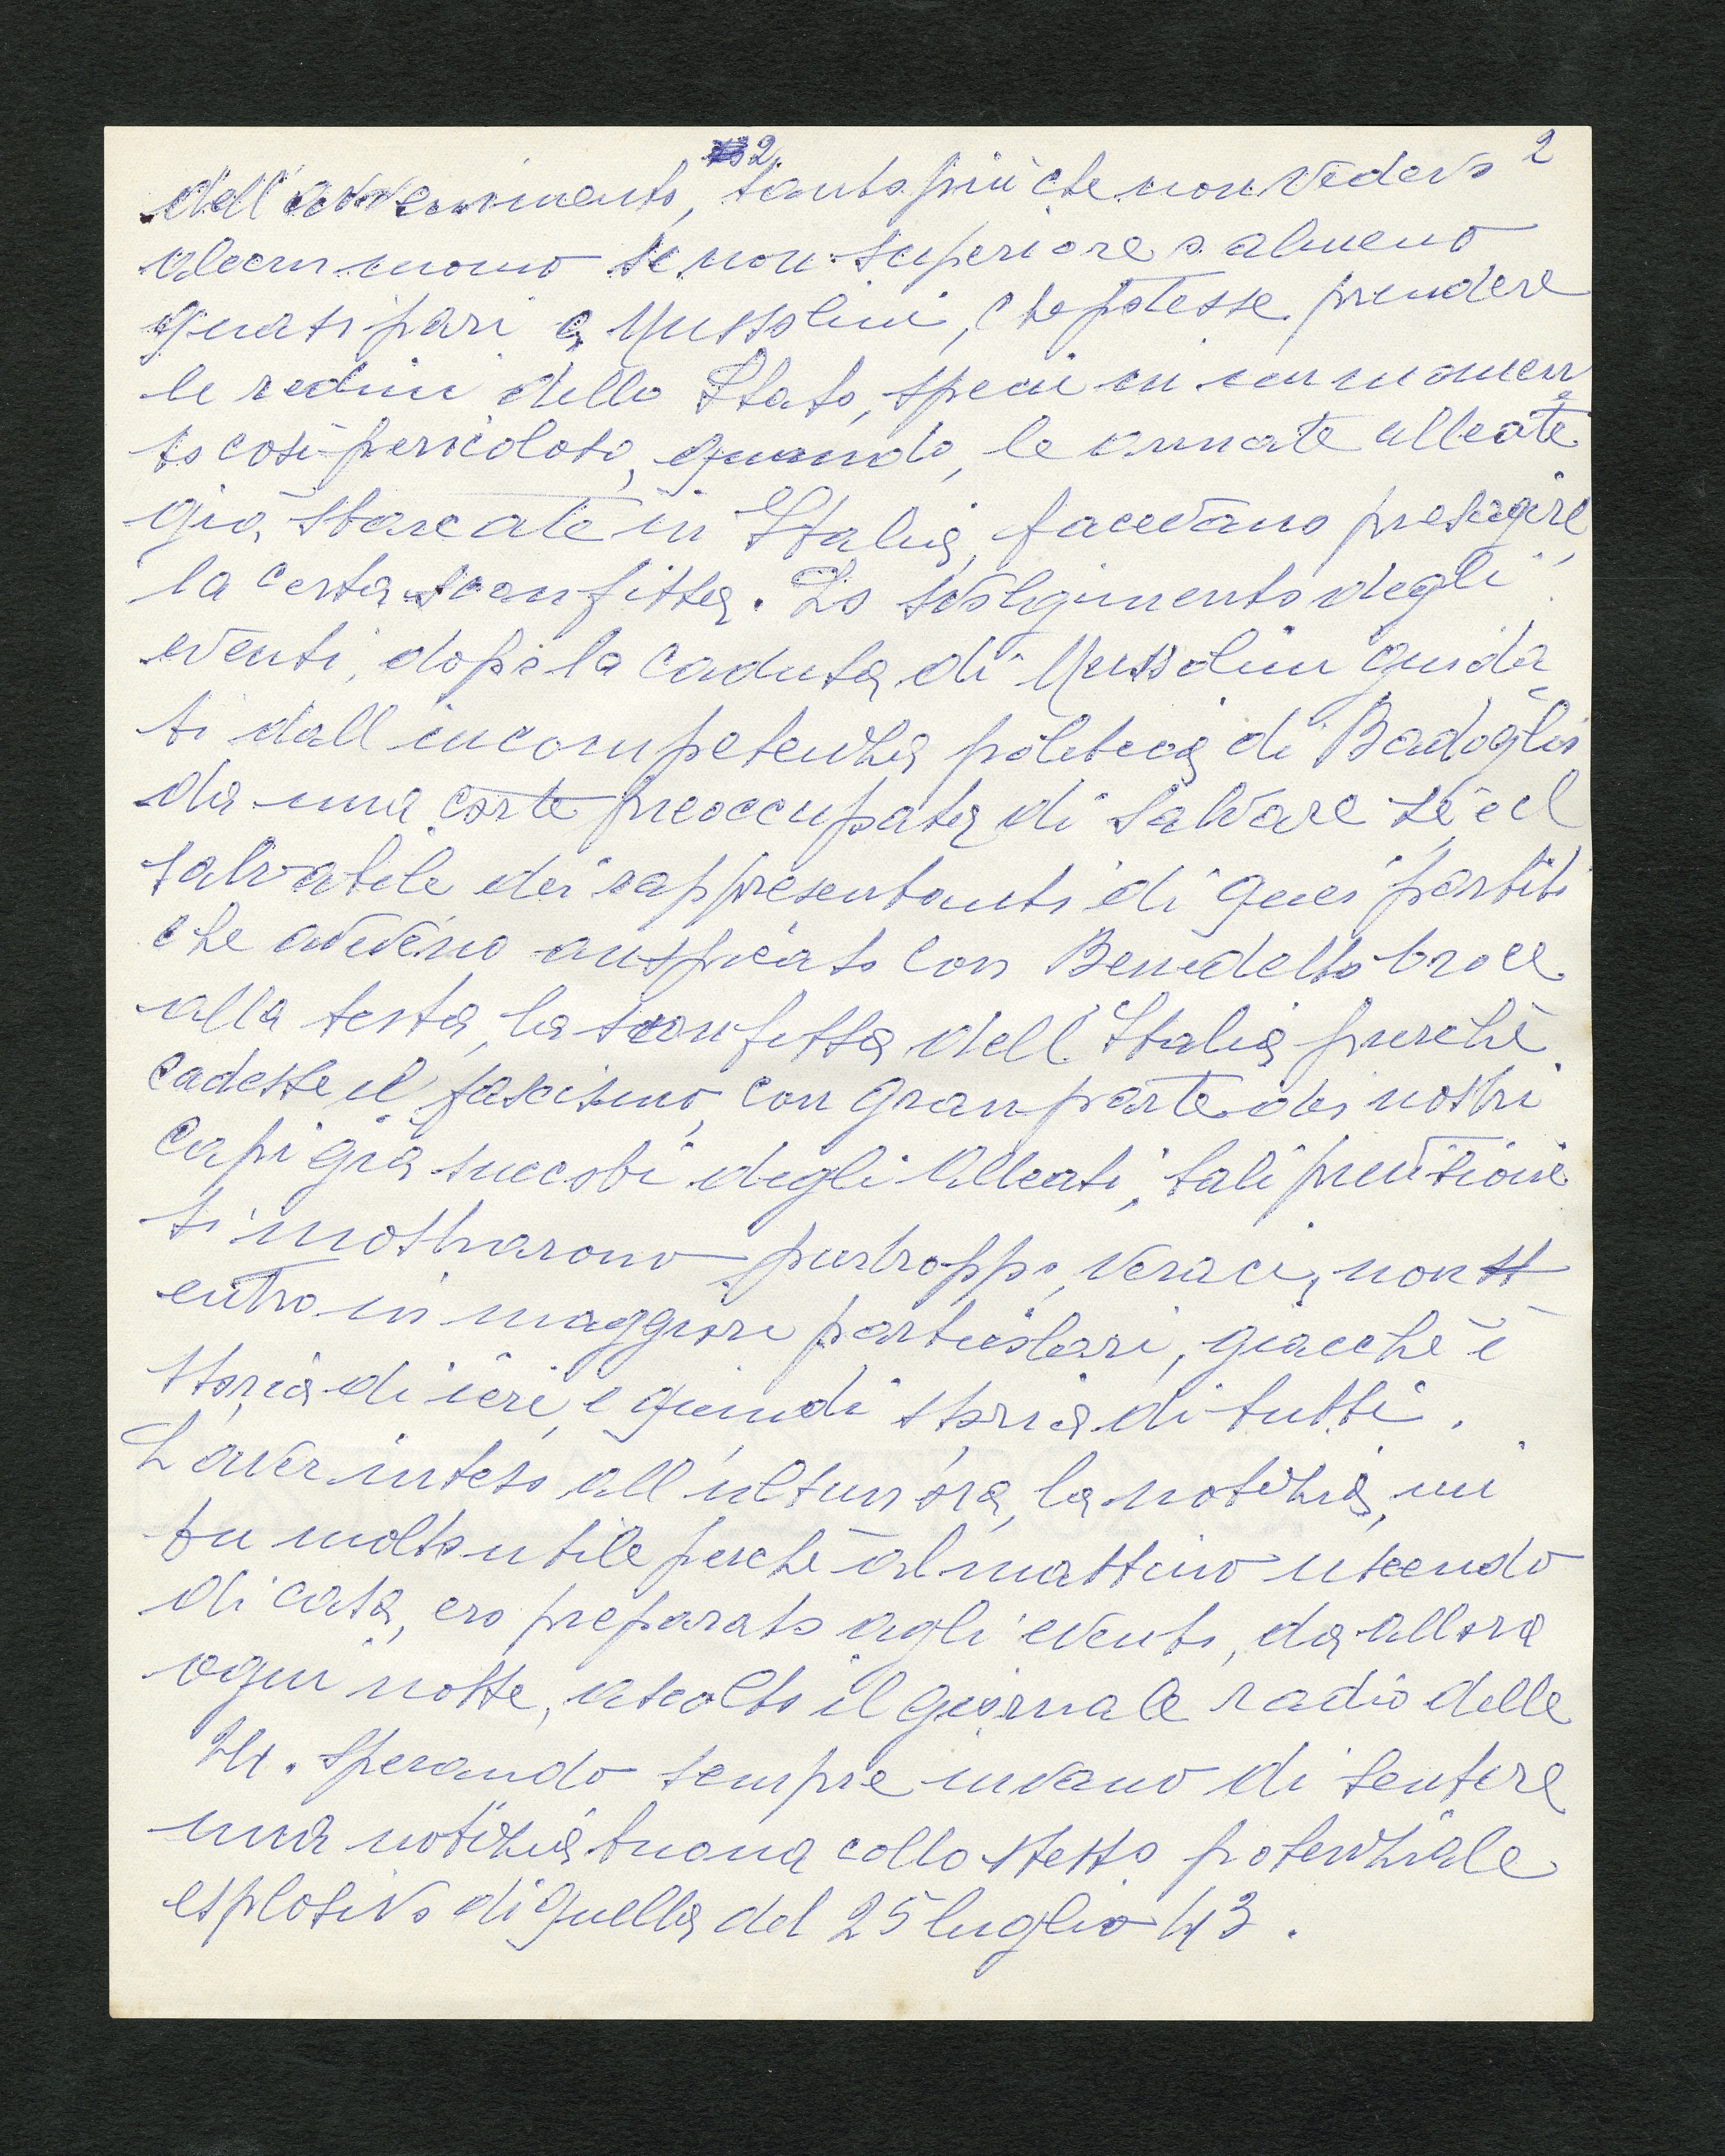 2 2
dell'avvenimento, tanto più che non vedevo
alcun uomo se non superiore o almeno
quasi pari a Mussolini, che potesse prendere
le redini dello Stato, specie in un momen
to così pericoloso, quando, le armate alleate
già sbarcate in Italia, facevano presagire,
la certa sconfitta. Lo svolgimento degli
eventi, dopo la caduta di Mussolini guida
ti dall'incompetenza politica di Badoglio
da una corte preoccupata di salvare sé e il
salvabile dei rappresentanti di quei partiti
che avevano auspicato con Benedetto Croce
alla testa, la sconfitta dell'Italia purchè
cadesse il fascismo, con gran parte dei nostri
capi già succobi degli Alleati, tali previsioni
si mostrarono purtroppo, veraci, non
entro in maggiori particolari, giacchè è
storia di ieri, e quindi storia di tutti.
L'aver inteso all'ultim'ora, la notizia, mi
fu molto utile perchè al mattino uscendo
di casa, ero preparato agli eventi, da allora
ogni notte, ascolto il giornale radio delle
24. sperando sempre invano di sentire
una notizia buona collo stesso potenziale
esplosivo di quella del 25 luglio 43.